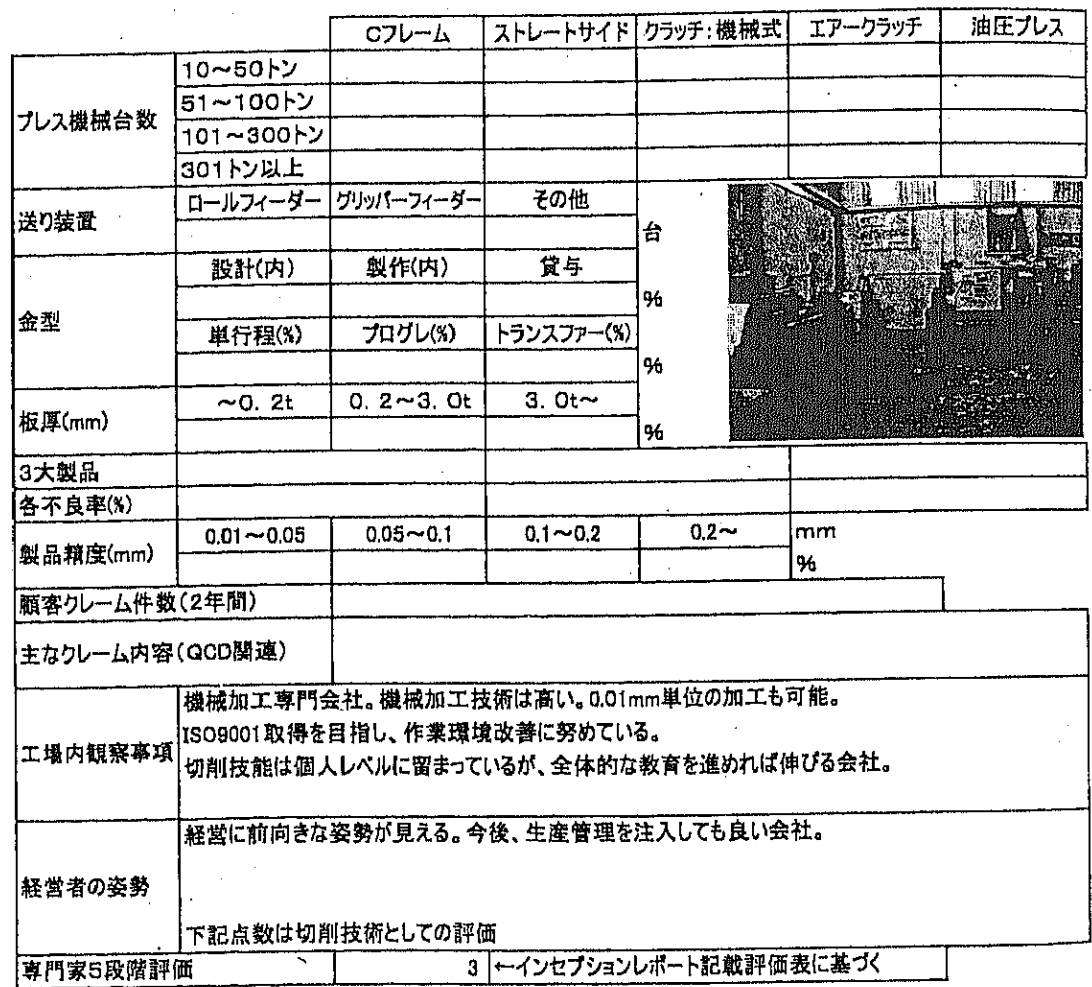 Cフレーム ストレートサイド クラッチ:機械式 エアークラッチ 油圧プレス
プレス機械台数
10～50トン
51～100トン
101～300トン
301トン以上
送り装置
ロールフィーダー グリッパーフィーダー その他
台
金型
設計(内)製作(内) 貸与
%
単行程(%) プログレ(%) トランスファー(%)
%
板厚(mm)
～0. 2t 0. 2～3. 0t 3. 0t～
%
3大製品
各不良率(%)
製品精度(mm)
0.01～0.05 0.05～0.1 0.1～0.2 0.2～ mm
%
顧客クレーム件数(2年間)
主なクレーム内容(QCD関連)
工場内観察事項
機械加工専門会社。機械加工技術は高い。0.01mm単位の加工も可能。
ISO9001取得を目指し、作業環境改善に努めている。
切削技能は個人レベルに留まっているが、全体的な教育を進めれば伸びる会社。
経営者の姿勢
経営に前向きな姿勢が見える。今後、生産管理を注入しても良い会社。
下記点数は切削技術としての評価
専門家5段階評価 3 ←インセプションレポート記載評価表に基づく